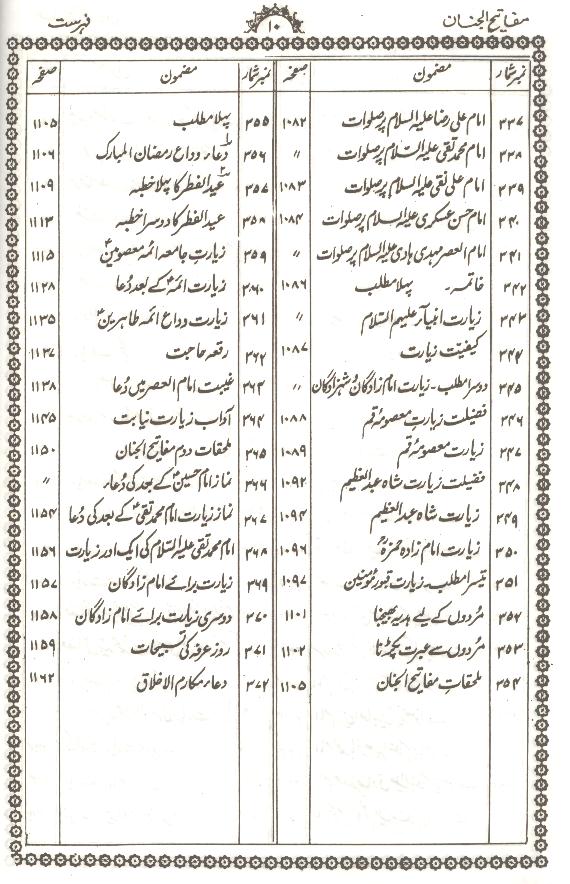 مفاتیح الجنان ۱۰ فہرست
نمبر شمار مضمون صفحہ
۳۳۷ امام علی رضا علیہ السلام پر صلوات ۱۰۸۲
۳۳۸ امام محمد تقی علیہ السلام پر صلوات 〃
۳۳۹ امام علی نقی علیہ السلام پر صلوات ۱۰۸۳
۳۴۰ امام حسن عسکری علیہ السلام پر صلوات ۱۰۸۴
۳۴۱ امام العصر مہدی ہادی علیہ السلام پر صلوات 〃
۳۴۲ خاتمہ۔ پہلا مطلب ۱۰۸۶
۳۴۳ زیارت انبیاء علیہم السلام 〃
۳۴۴ کیفیت زیارت ۱۰۸۷
۳۴۵ دوسرا مطلب۔ زیارت امام زادگان و شہزادگان 〃
۳۴۶ فضیلت زیارتِ معصومہ قم ۱۰۸۸
۳۴۷ زیارت معصومہ قم ۱۰۸۹
۳۴۸ فضیلت زیارت شاہ عبدالعظیم ۱۰۹۲
۳۴۹ زیارت شاہ عبدالعظیم ۱۰۹۴
۳۵۰ زیارت امام زادہ حمزہؒ ۱۰۹۶
۳۵۱ تیسرا مطلب۔ زیارت قبور مؤمنین ۱۰۹۷
۳۵۲ مُردوں کے لیے ہدیہ بھیجنا ۱۱۰۱
۳۵۳ مُردوں سے عبرت پکڑنا ۱۱۰۲
۳۵۴ ملحقاتِ مفاتیح الجنان ۱۱۰۵
نمبر شمار مضمون صفحہ
۳۵۵ پہلا مطلب ۱۱۰۵
۳۵۶ دُعاء وداع رمضان المبارک ۱۱۰۶
۳۵۷ عید الفطر کا پہلا خطبہ ۱۱۰۹
۳۵۸ عید الفطر کا دوسرا خطبہ ۱۱۱۳
۳۵۹ زیارتِ جامعہ ائمہ معصومینؑ ۱۱۱۵
۳۶۰ زیارت ائمہؑ کے بعد دُعا ۱۱۲۸
۳۶۱ زیارت وداع ائمہ طاہرینؑ ۱۱۳۵
۳۶۲ رقعہ حاجت ۱۱۳۷
۳۶۳ غیبت امام العصر میں دُعا ۱۱۳۸
۳۶۴ آداب زیارت نیابت ۱۱۴۵
۳۶۵ ملحقات دوم مفاتیح الجنان ۱۱۵۰
۳۶۶ نماز امام حسینؑ کے بعد کی دُعاء 〃
۳۶۷ نماز زیارت امام محمد تقیؑ کے بعد کی دُعا ۱۱۵۴
۳۶۸ امام محمد تقی علیہ السلام کی ایک اور زیارت ۱۱۵۶
۳۶۹ زیارت برائے امام زادگان ۱۱۵۷
۳۷۰ دوسری زیارت برائے امام زادگان ۱۱۵۸
۳۷۱ روز عرفہ کی تسبیحات ۱۱۵۹
۳۷۲ دعاء مکارم الاخلاق ۱۱۶۲